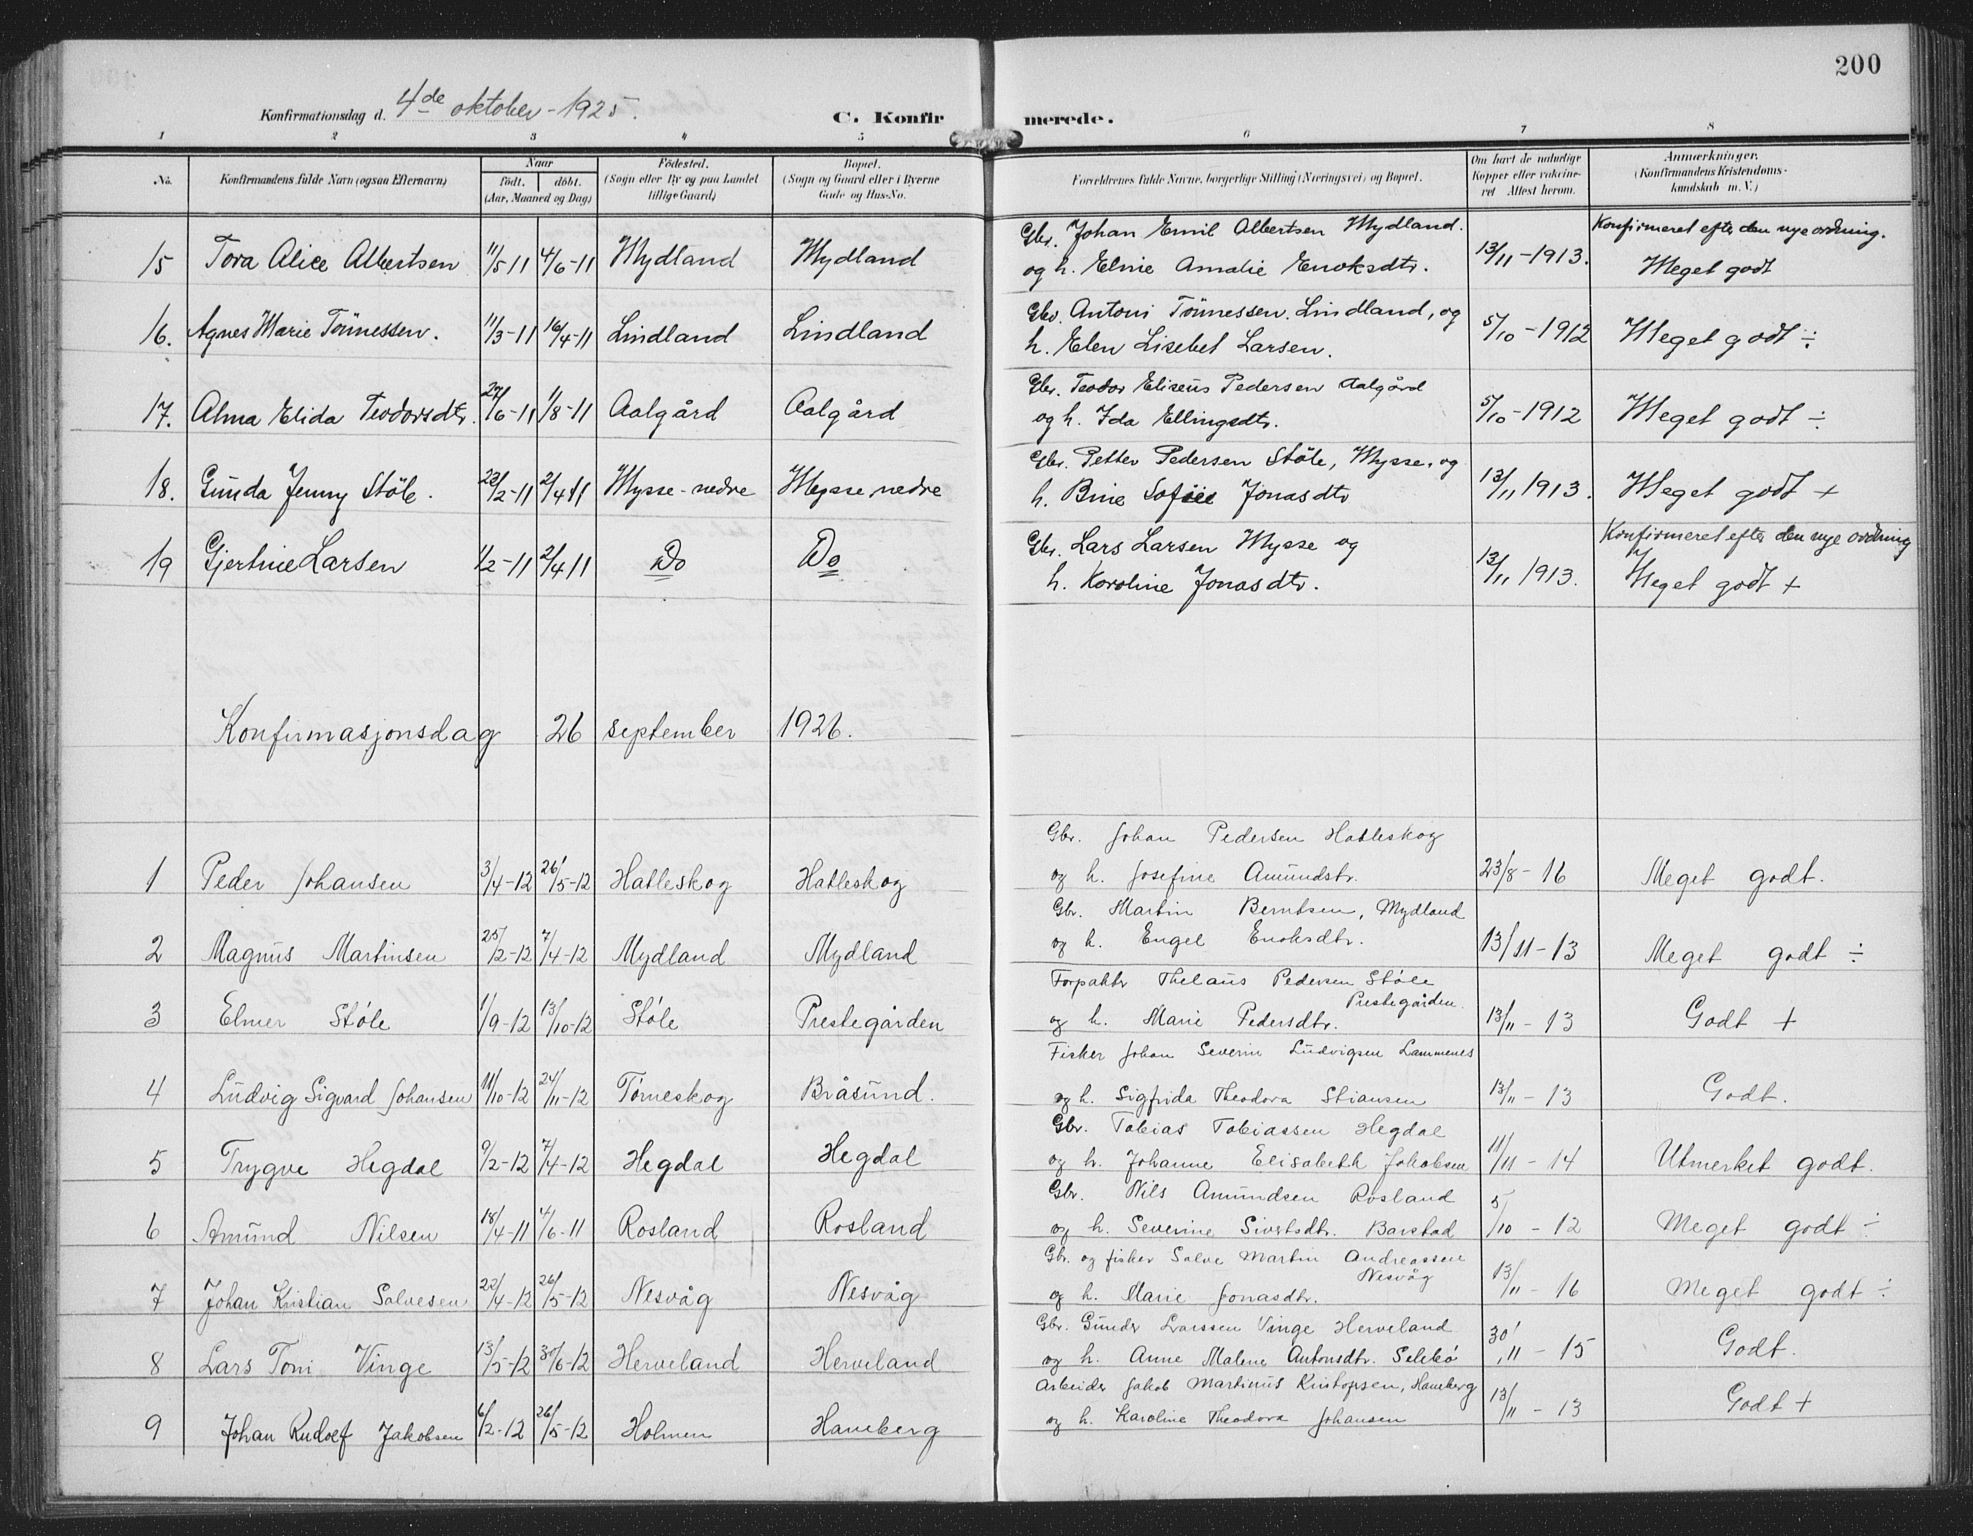 200
Konfirmationsdag d. 4de oktober - 1925.
C. Konfirmerede.
1 2 3 4 5 6 7 8
No. Konfirmandens fulde Navn (ogsaa Efternavn) Naar født. døbt. (Aar, Maaned og Dag) Fødested. (Sogn eller By og paa Landet tillige Gaard) Bopæl. (Sogn og Gaard eller i Byerne Gade og Hus-No. Forældrenes fulde Navne, borgerlige Stilling (Næringsvei) og Bopæl. Om havt de naturlige Kopper eller vakcineret Attest herom. Anmærkninger. (Konfirmandens Kristendomskundskab m. V.)
Gbr. Johan Emil Albertsen Mydland. Konfirmeret efter den nye ordning.
15 Tora Alice Albertsen 11/5 11 4/6-11 Mydland Mydland og h. Eline Amalie Enoksdtr. 13/11-1913. Meget godt
Gbr. Antoni Tönnessen Lindland, og
16. Agnes Marie Tönnessen. 11/3-11 16/4-11 Lindland Lindland h. Elen Lisebet Larsen. 5/10-1912 Meget godt ÷
Gbr. Teodor Eliseus Pedersen Aalgård
17. Alma Elida Teodorsdtr. 27/6-11 1/8-11 Aalgård Aalgård og h. Ida Ellingsdtr. 5/10-1912 Meget godt ÷
Gbr. Petter Pedersen Støle, Mysse, og
18. Gunda Jenny Støle. 22/2-11 2/4 11 Mysse-nedre Mysse nedre h. Bine Sofie Jonasdtr 13/11 1913. Meget godt +
Gbr. Lars Larsen Mysse og Konfirmeret efter den nye ordning
19 Gjertine Larsen 1/2-11 2/4 11 Do Do h. Karoline Jonasdtr. 13/11 1913. Meget godt +
Konfirmasjonsdag 26 september 1926.
Gbr. Johan Pedersen Hatleskog
1 Peder Johansen 3/4-12 26/5-12 Hatleskog Hatleskog og h. Josefine Amundstr. 23/8-16 Meget godt.
Gbr. Martin Berntsen, Mydland
2 Magnus Martinsen 25/2-12 7/4-12 Mydland Mydland og h. Engel Enoksdtr. 13/11-13 Meget godt ÷
Forpakter Thelaus Pedersen Støle
Prestegården.
3 Elmer Støle 1/9-12 13/10-12 Støle Prestegården og h. Marie Pedersdtr. 13/11-13 Godt +
Fisker Johan Severin Ludvigsen Lammenes
4 Ludvig Sigvard Johansen 11/10-12 24/11-12 Tørneskog Bråsund. og h. Sigfrida Theodora Stiansen 13/11-13 Godt.
Gbr. Tobias Tobiassen Hegdal
5 Trygve Hegdal 9/2-12 7/4-12 Hegdal Hegdal og h. Johanne Elisabeth Jakobsen 11/11-14 Utmerket godt.
Gbr. Nils Amundsen Rosland
6 Amund Nilsen 18/4-11 4/6-11 Rosland Rosland og h. Severine Sivertsdtr. Barstad 5/10-12 Meget godt ÷
Gbr. og fisker Salve Martin Andreassen
Nesvåg
7 Johan Kristian Salvesen 22/4-12 26/5-12 Nesvåg Nesvåg og h. Marie Jonasdtr. 13/11-16 Meget godt ÷
Gbr. Gunder Larssen Vinge Herveland
8 Lars Toni Vinge 13/5-12 30/6-12 Herveland Herveland og h. Anne Malene Antonsdtr. Selebø 30/11-15 Godt.
Arbeider Jakob Martinus Kristofsen, Haneberg
9 Johan Rudolf Jakobsen 6/2-12 26/5-12 Holmen Haneberg og h. Karoline Theodora Johansen 13/11-13 Godt +